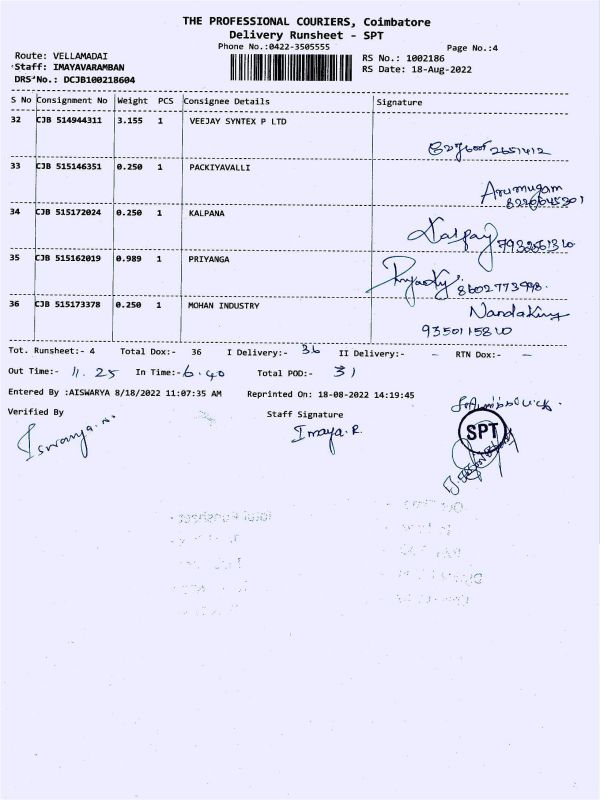 THE PROFESSIONAL COURIERS, Coimbatore
Delivery Runsheet - SPT
Phone No.:0422-3505555
Page No.:4
Route: VELLAMADAI
RS No.: 1002186
Staff: IMAYAVARAMBAN
RS Date: 18-Aug-2022
DRS No.: DCJB100218604
S No Consignment No Weight PCS Consignee Details Signature
32 CJB 514944311 3.155 1 VEEJAY SYNTEX P LTD
2651412
33 CJB 515146351 0.250 1 PACKIYAVALLI
Arumugam
34 CJB 515172024 0.250 1 KALPANA
35 CJB 515162019 0.989 1 PRIYANGA
8602773998.
36 CJB 515173378 0.250 1 MOHAN INDUSTRY
Tot. Runsheet:- 4 Total Dox:- 36 I Delivery:- 36 II Delivery:- - RTN Dox:- -
Out Time:- 11.25 In Time:- 6.40 Total POD:- 31
Entered By :AISWARYA 8/18/2022 11:07:35 AM Reprinted On: 18-08-2022 14:19:45
Verified By Staff Signature
Imaya.R.
SPT